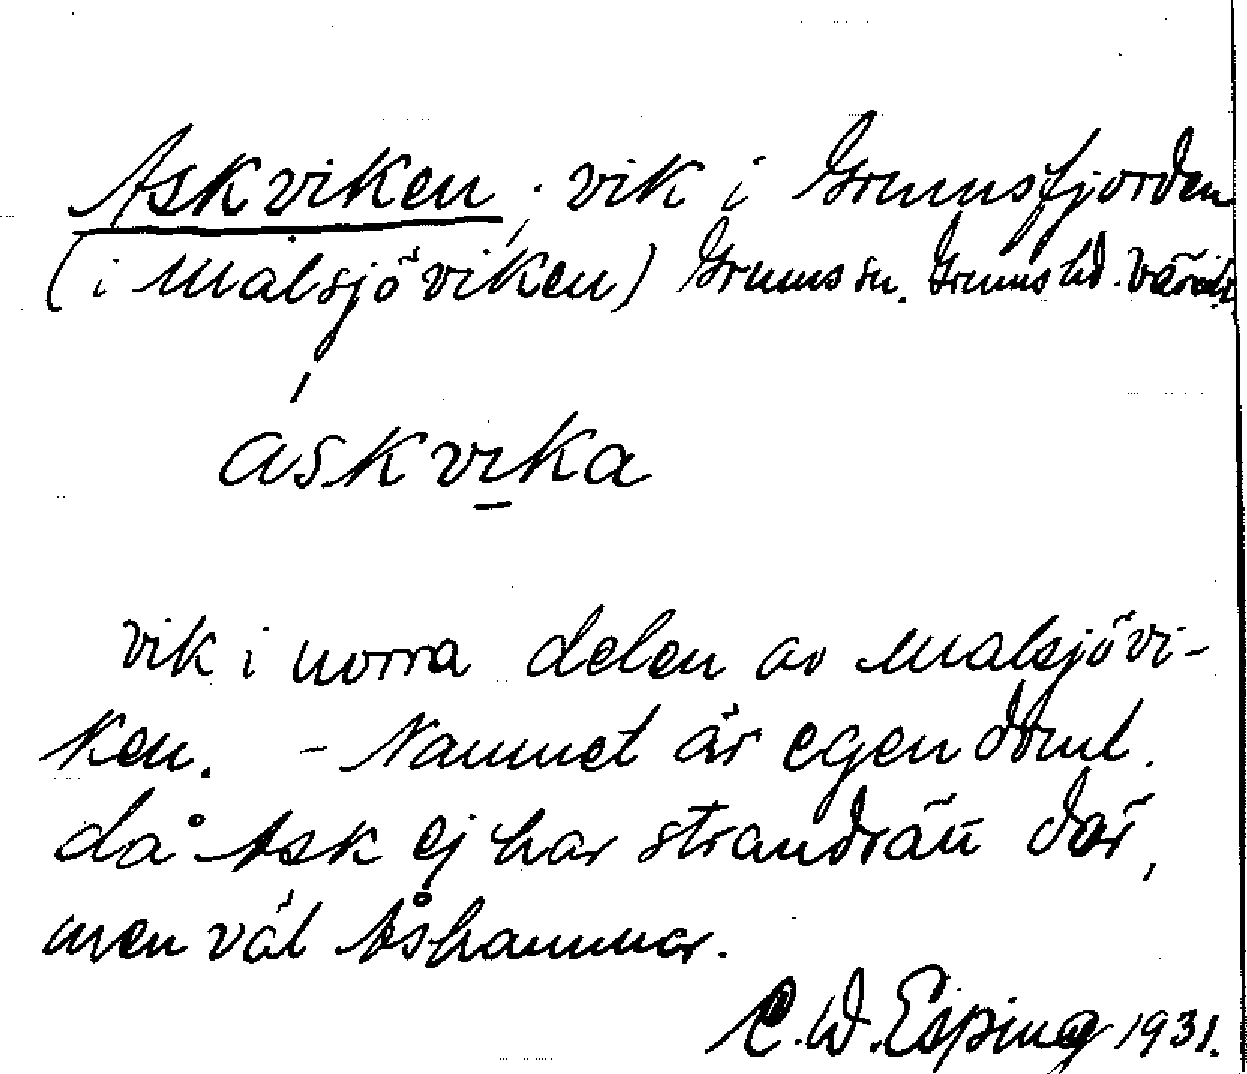 Askviken, vik i Grumsfjorden
(i Malsjöviken) Grums sn. Grums hd.
áskvika
vik i norra delen av Malsjövi-
ken. - Namnet är egendoml.
då Ask ej har strandrätt där,
men väl Åshammar.
C. W. Esping 1931.